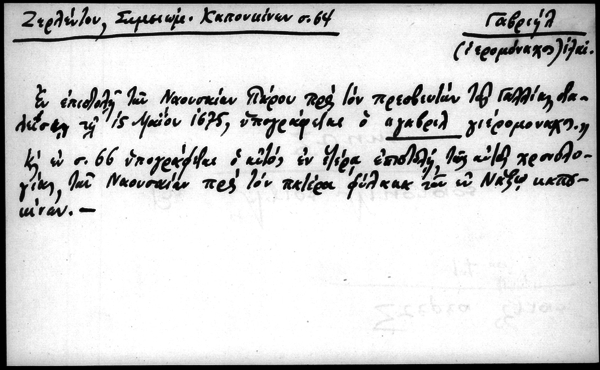 Ζερλέντου, Σημειώμ. Καπουκίνων σ. 64
Γαβριήλ
(ἱερομόναχος)
Ἐν ἐπιστολῇ τῶν Ναουσαίων Πάρου πρὸς τὸν πρεσβευτὴν τῆς Γαλλίας
τῇ 15 Μαΐου 1675, ὑπογράφεται ὁ αγαβριλ γιερομοναχος
Κὶ ἐν σ. 66 ὑπογράφεται ὁ αὐτός, ἐν ἑτέρᾳ ἐπιστολῇ τῆς αὐτῆς χρονολο-
γίας, τῶν Ναουσαίων πρὸς τὸν πατέρα φύλακα τῶν ἐν Νάξῳ καπου-
κίνων. —